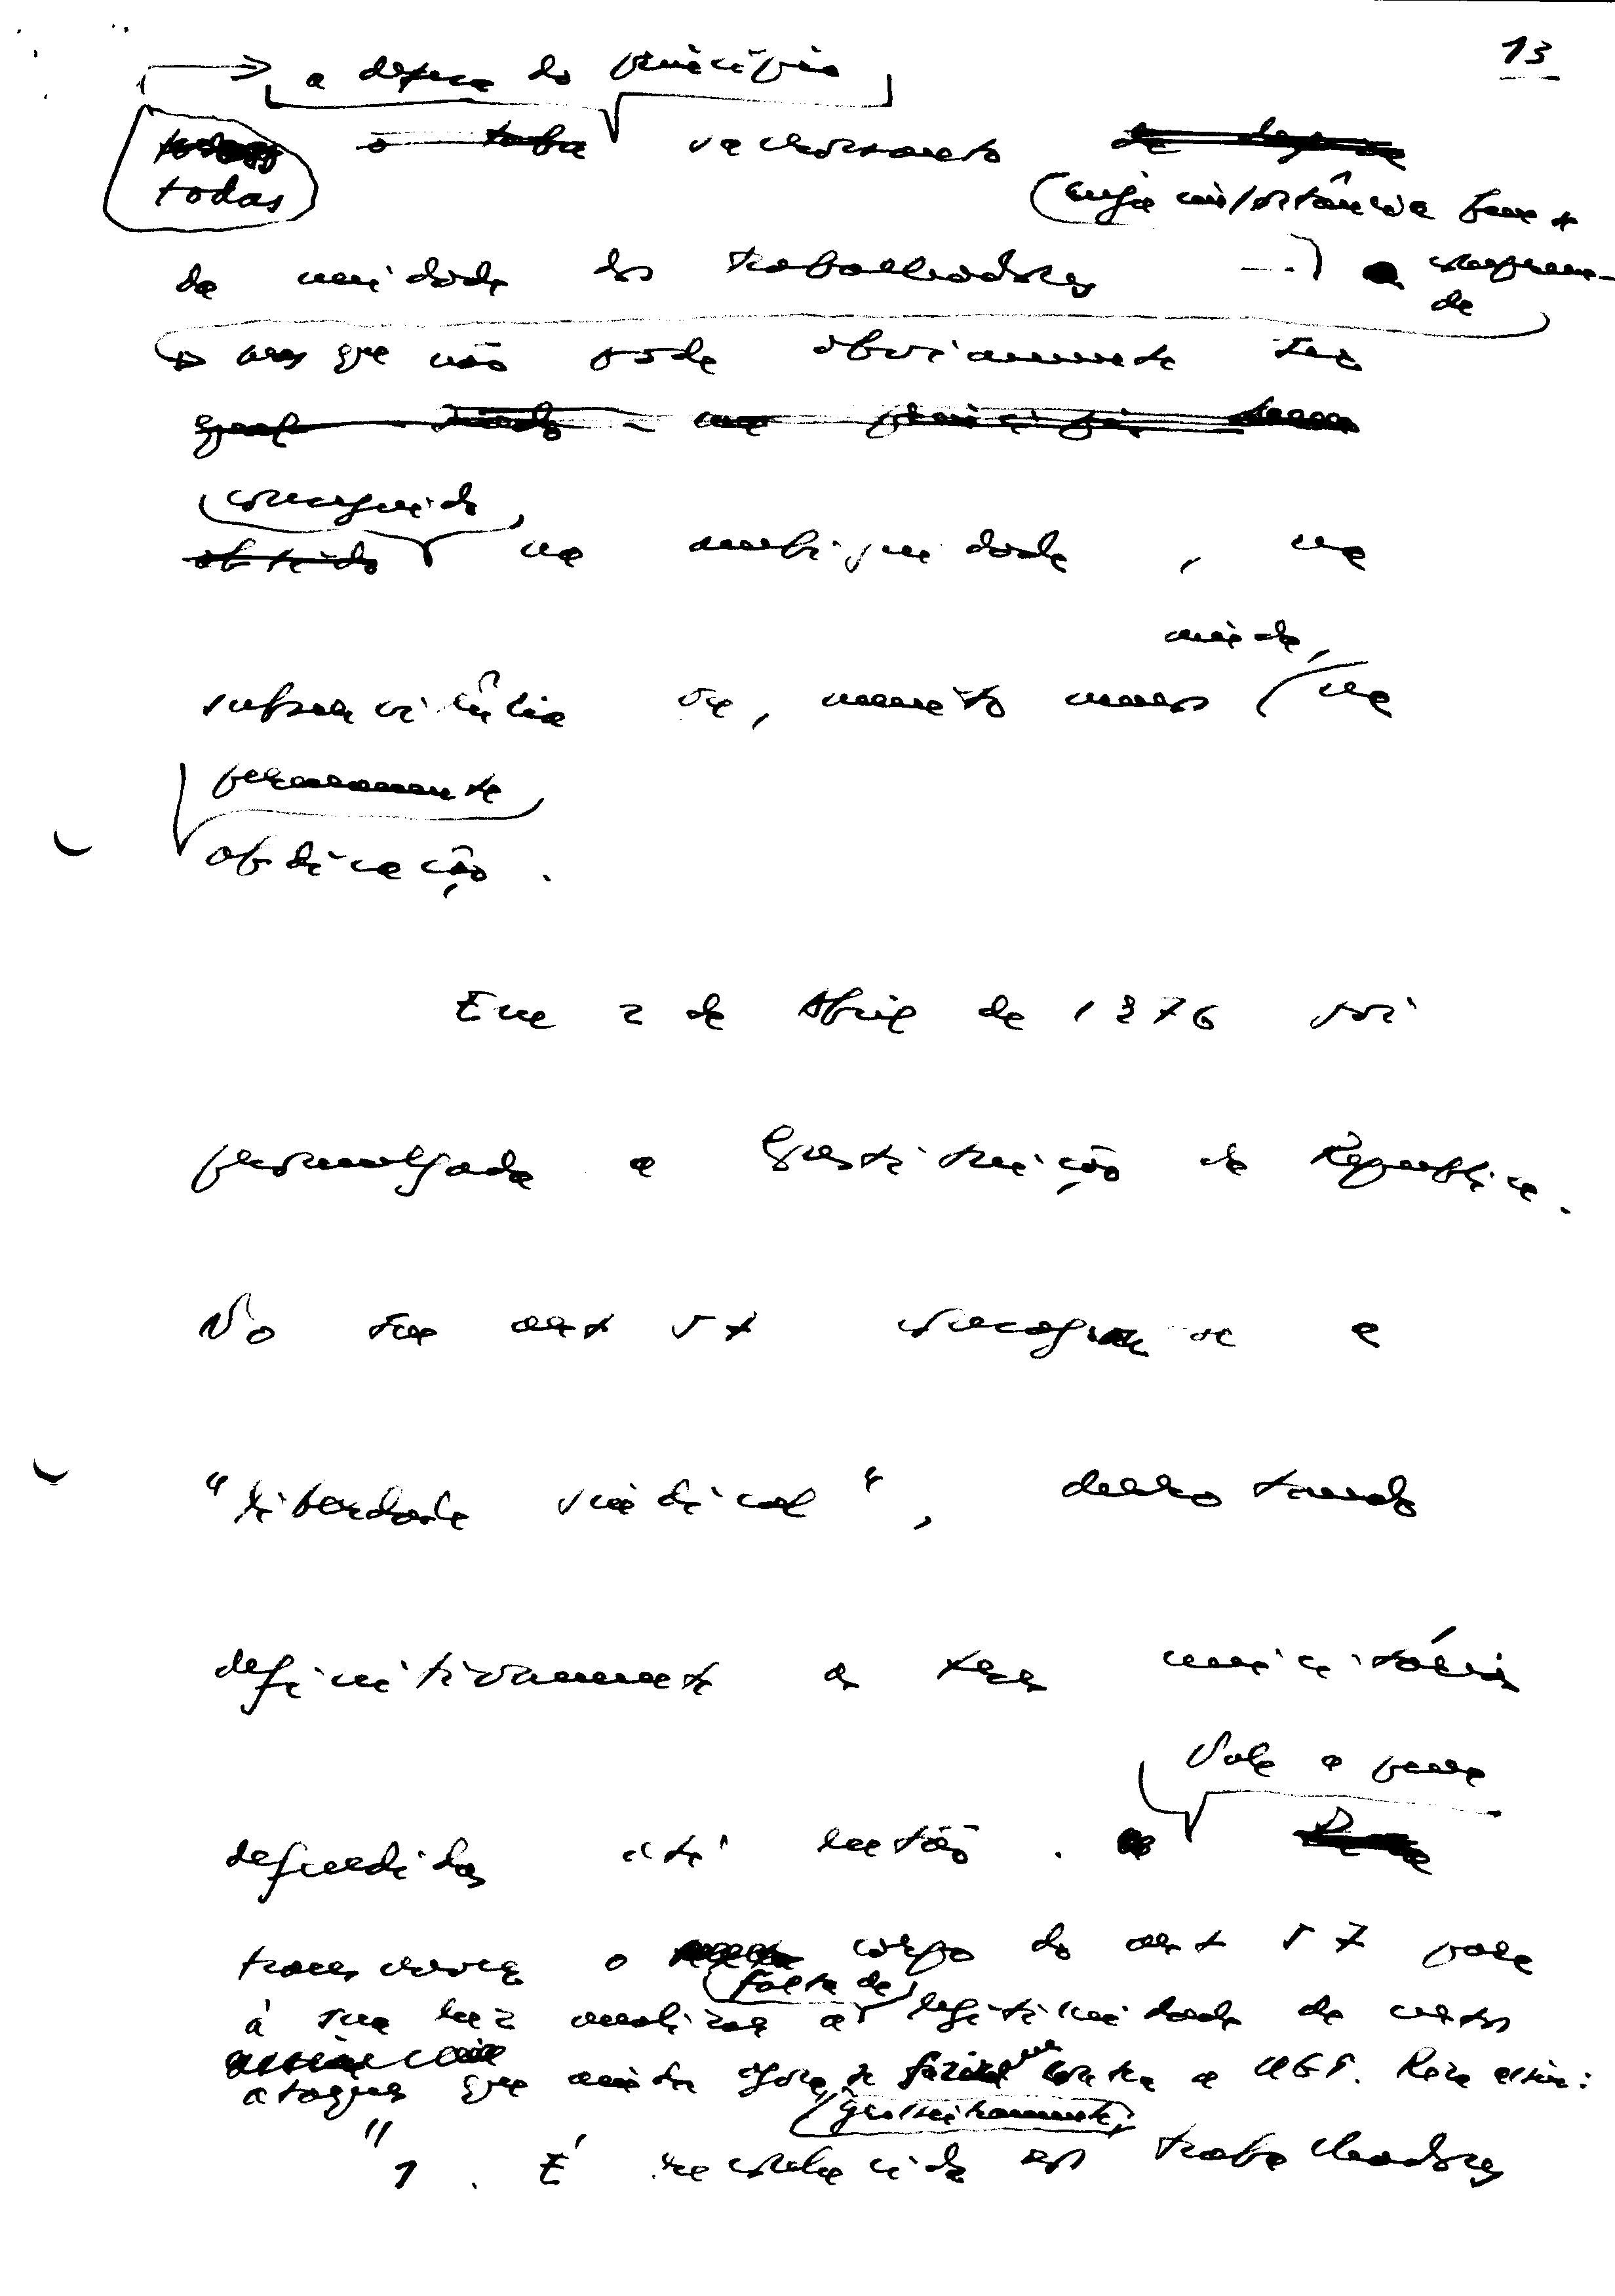 13
a defesa do princípio
todas
cuja importância
da unidade dos trabalhadores
mas que não pode obviamente ser
conseguida
obtido na ambiguidade, na
ainda,
subserviência ou, muito menos na
permanente
abdicação.
Em 2 de Abril de 1976 foi
promulgada a Constituição da República.
No seu art 57 consagra-se a
"liberdade sindical", derrotando
definitivamente as teses unicitárias
Vale a pena
defendidas até então.
transcrever o corpo do art 57 para
falta de
à sua luz analizar a legitimidade de certos
ataques que ainda hoje se fazem contra a UGT. Reza assim:
"1. É reconhecida aos trabalhadores